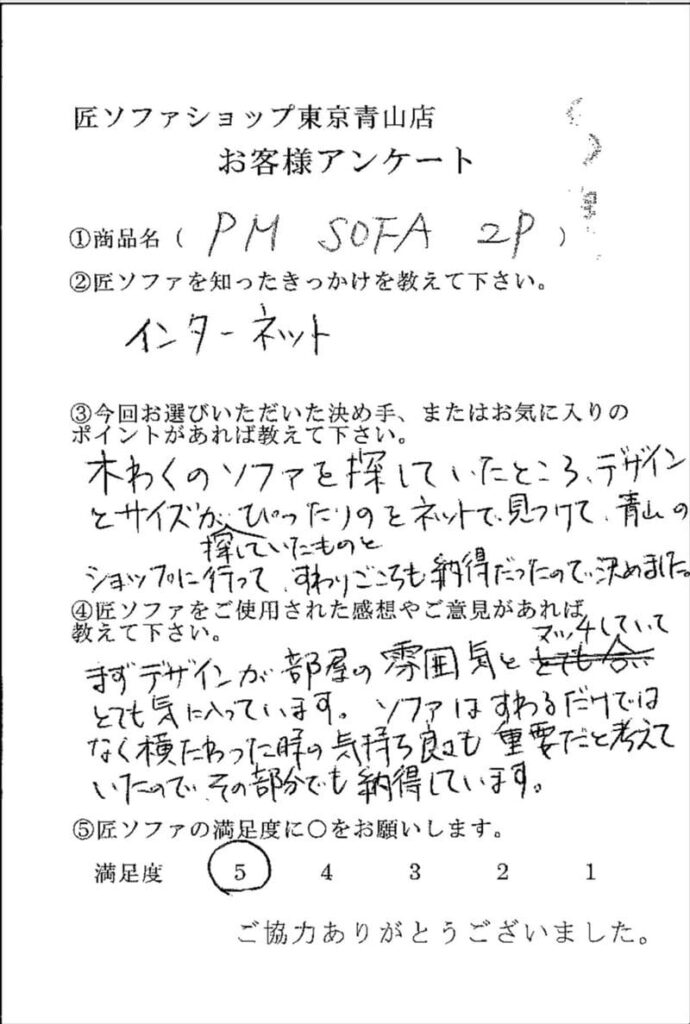 匠ソファショップ東京青山店
お客様アンケート
①商品名（ PM SOFA 2P ）
②匠ソファを知ったきっかけを教えて下さい。
インターネット
③今回お選びいただいた決め手、またはお気に入りの
ポイントがあれば教えて下さい。
木わくのソファを探していたところ、デザイン
とサイズが、ぴったりのとネットで見つけて、青山の
探していたものと
ショップに行って、すわりごこちも納得だったので決めました。
④匠ソファをご使用された感想やご意見があれば
教えて下さい。
マッチしていて
まずデザインが部屋の雰囲気ととても合い
とても気に入っています。ソファはすわるだけでは
なく横たわった時の気持ち良さも重要だと考えて
いたので、その部分でも納得しています。
⑤匠ソファの満足度に○をお願いします。
満足度 5 4 3 2 1
ご協力ありがとうございました。